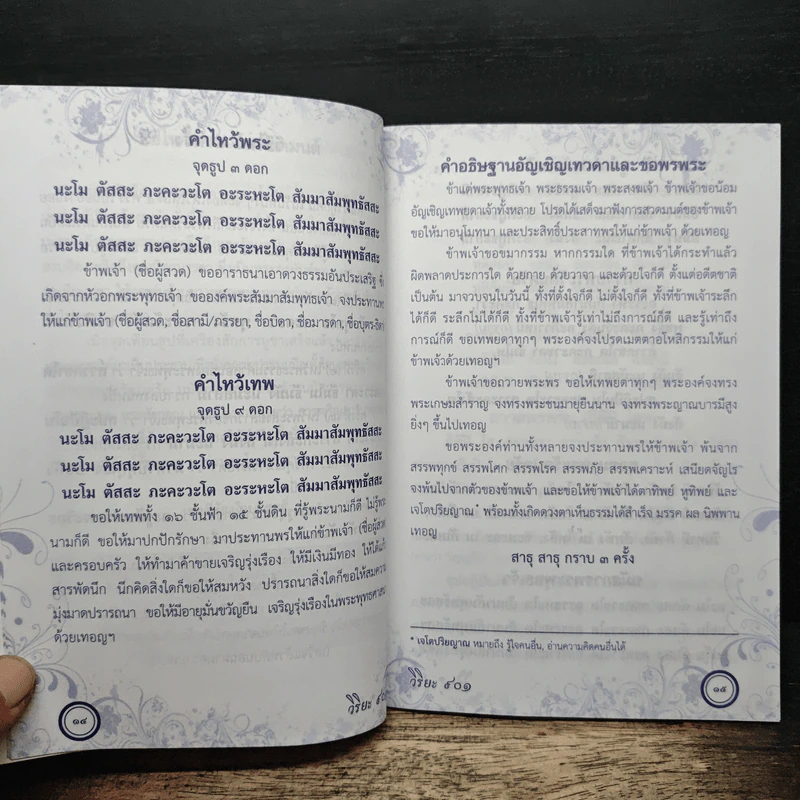 คำไหว้พระ
จุดธูป ๓ ดอก
นะโม ตัสสะ ภะคะวะโต อะระหะโต สัมมาสัมพุทธัสสะ
นะโม ตัสสะ ภะคะวะโต อะระหะโต สัมมาสัมพุทธัสสะ
นะโม ตัสสะ ภะคะวะโต อะระหะโต สัมมาสัมพุทธัสสะ
ข้าพเจ้า (ชื่อผู้สวด) ขออาราธนาเอาดวงธรรมอันประเสริฐ
เกิดจากหัวอกพระพุทธเจ้า ขอองค์พระสัมมาสัมพุทธเจ้า จงประทานพร
ให้แก่ข้าพเจ้า (ชื่อผู้สวด, ชื่อสามี/ภรรยา, ชื่อบิดา, ชื่อมารดา, ชื่อบุตร-ธิดา)
คำไหว้เทพ
จุดธูป ๙ ดอก
นะโม ตัสสะ ภะคะวะโต อะระหะโต สัมมาสัมพุทธัสสะ
นะโม ตัสสะ ภะคะวะโต อะระหะโต สัมมาสัมพุทธัสสะ
นะโม ตัสสะ ภะคะวะโต อะระหะโต สัมมาสัมพุทธัสสะ
ขอให้เทพทั้ง ๑๖ ชั้นฟ้า ๑๕ ชั้นดิน ที่รู้พระนามก็ดี ไม่รู้พระ
นามก็ดี ขอให้มาปกปักรักษา มาประทานพรให้แก่ข้าพเจ้า (ชื่อผู้สวด)
และครอบครัว ให้ทำมาค้าขายเจริญรุ่งเรือง ให้มีเงินมีทอง ให้ได้แก้ว
สารพัดนึก นึกคิดสิ่งใดก็ขอให้สมหวัง ปรารถนาสิ่งใดก็ขอให้สมความ
มุ่งมาดปรารถนา ขอให้มีอายุมั่นขวัญยืน เจริญรุ่งเรืองในพระพุทธศาสนา
ด้วยเทอญฯ
วิริยะ
๑๔
คำอธิษฐานอัญเชิญเทวดาและขอพรพระ
ข้าแต่พระพุทธเจ้า พระธรรมเจ้า พระสงฆเจ้า ข้าพเจ้าขอน้อม
อัญเชิญเทพยดาเจ้าทั้งหลาย โปรดได้เสด็จมาฟังการสวดมนต์ของข้าพเจ้า
ขอให้มาอนุโมทนา และประสิทธิ์ประสาทพรให้แก่ข้าพเจ้า ด้วยเทอญ
ข้าพเจ้าขอขมากรรม หากกรรมใด ที่ข้าพเจ้าได้กระทำแล้ว
ผิดพลาดประการใด ด้วยกาย ด้วยวาจา และด้วยใจก็ดี ตั้งแต่อดีตชาติ
เป็นต้น มาจวบจนในวันนี้ ทั้งที่ตั้งใจก็ดี ไม่ตั้งใจก็ดี ทั้งที่ข้าพเจ้าระลึก
ได้ก็ดี ระลึกไม่ได้ก็ดี ทั้งที่ข้าพเจ้ารู้เท่าไม่ถึงการณ์ก็ดี และรู้เท่าถึง
การณ์ก็ดี ขอเทพยดาทุกๆ พระองค์จงโปรดเมตตาอโหสิกรรมให้แก่
ข้าพเจ้าด้วยเทอญฯ
ข้าพเจ้าขอถวายพระพร ขอให้เทพยดาทุกๆ พระองค์จงทรง
พระเกษมสำราญ จงทรงพระชนมายุยืนนาน จงทรงพระญาณบารมีสูง
ยิ่งๆ ขึ้นไปเทอญ
ขอพระองค์ท่านทั้งหลายจงประทานพรให้ข้าพเจ้า พ้นจาก
สรรพทุกข์ สรรพโศก สรรพโรค สรรพภัย สรรพเคราะห์ เสนียดจัญไร
จงพ้นไปจากตัวของข้าพเจ้า และขอให้ข้าพเจ้าได้ตาทิพย์ หูทิพย์ และ
เจโตปริยญาณ* พร้อมทั้งเกิดดวงตาเห็นธรรมได้สำเร็จ มรรค ผล นิพพาน
เทอญ
สาธุ สาธุ กราบ ๓ ครั้ง
* เจโตปริยญาณ หมายถึง รู้ใจคนอื่น, อ่านความคิดคนอื่นได้
วิริยะ ๙๐๑
๑๕